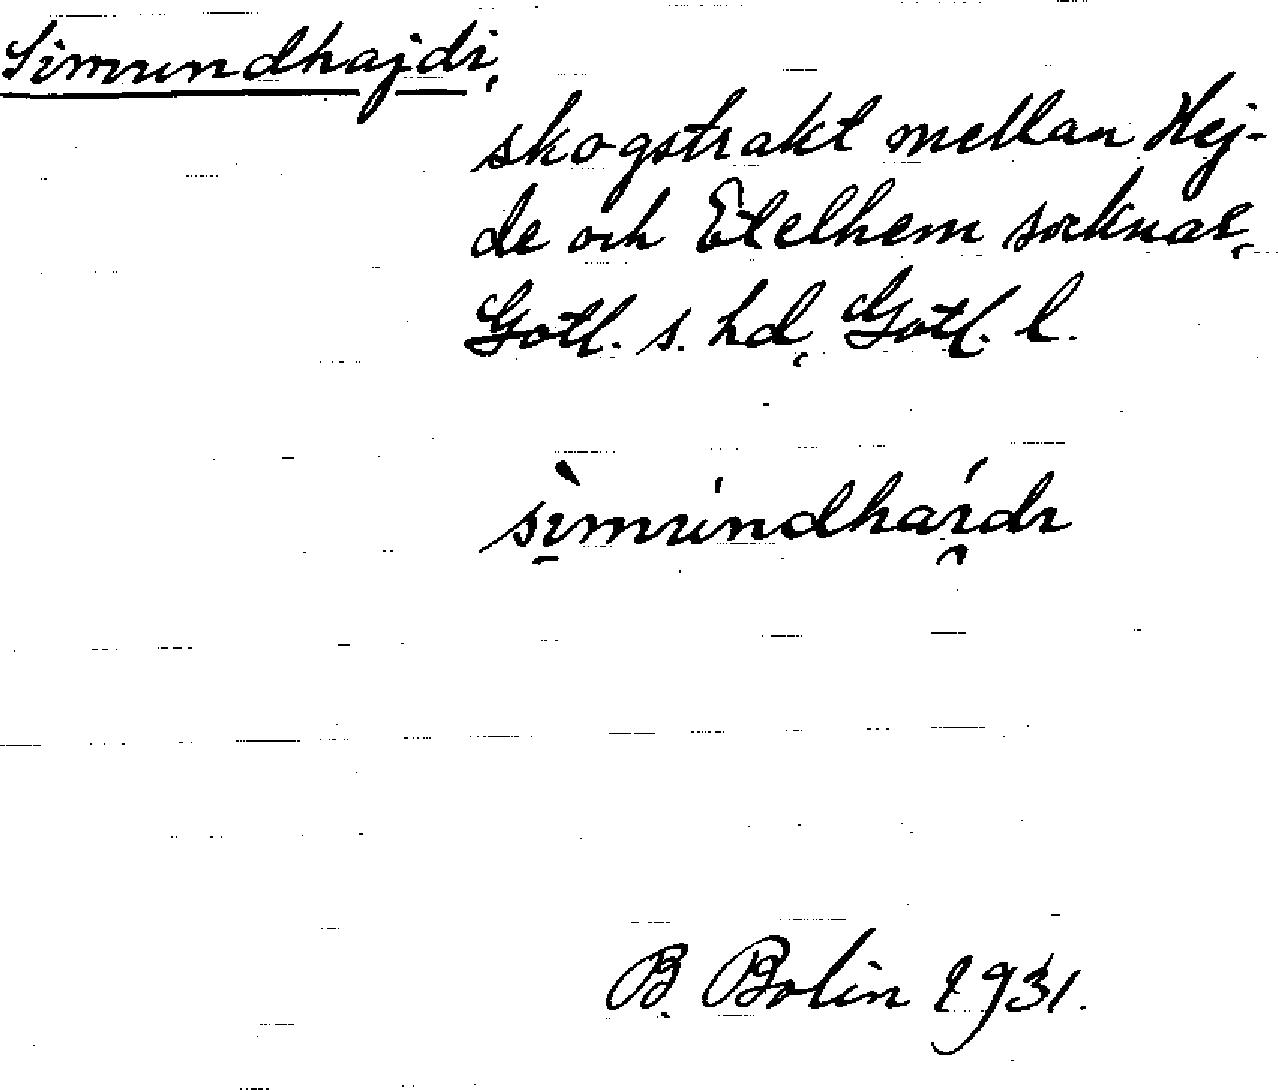 Simundhajdi,
skogstrakt mellan Hej-
de och Etelhem socknar,
Gotl. s. hd, Gotl. l.
B. Bolin 1931.